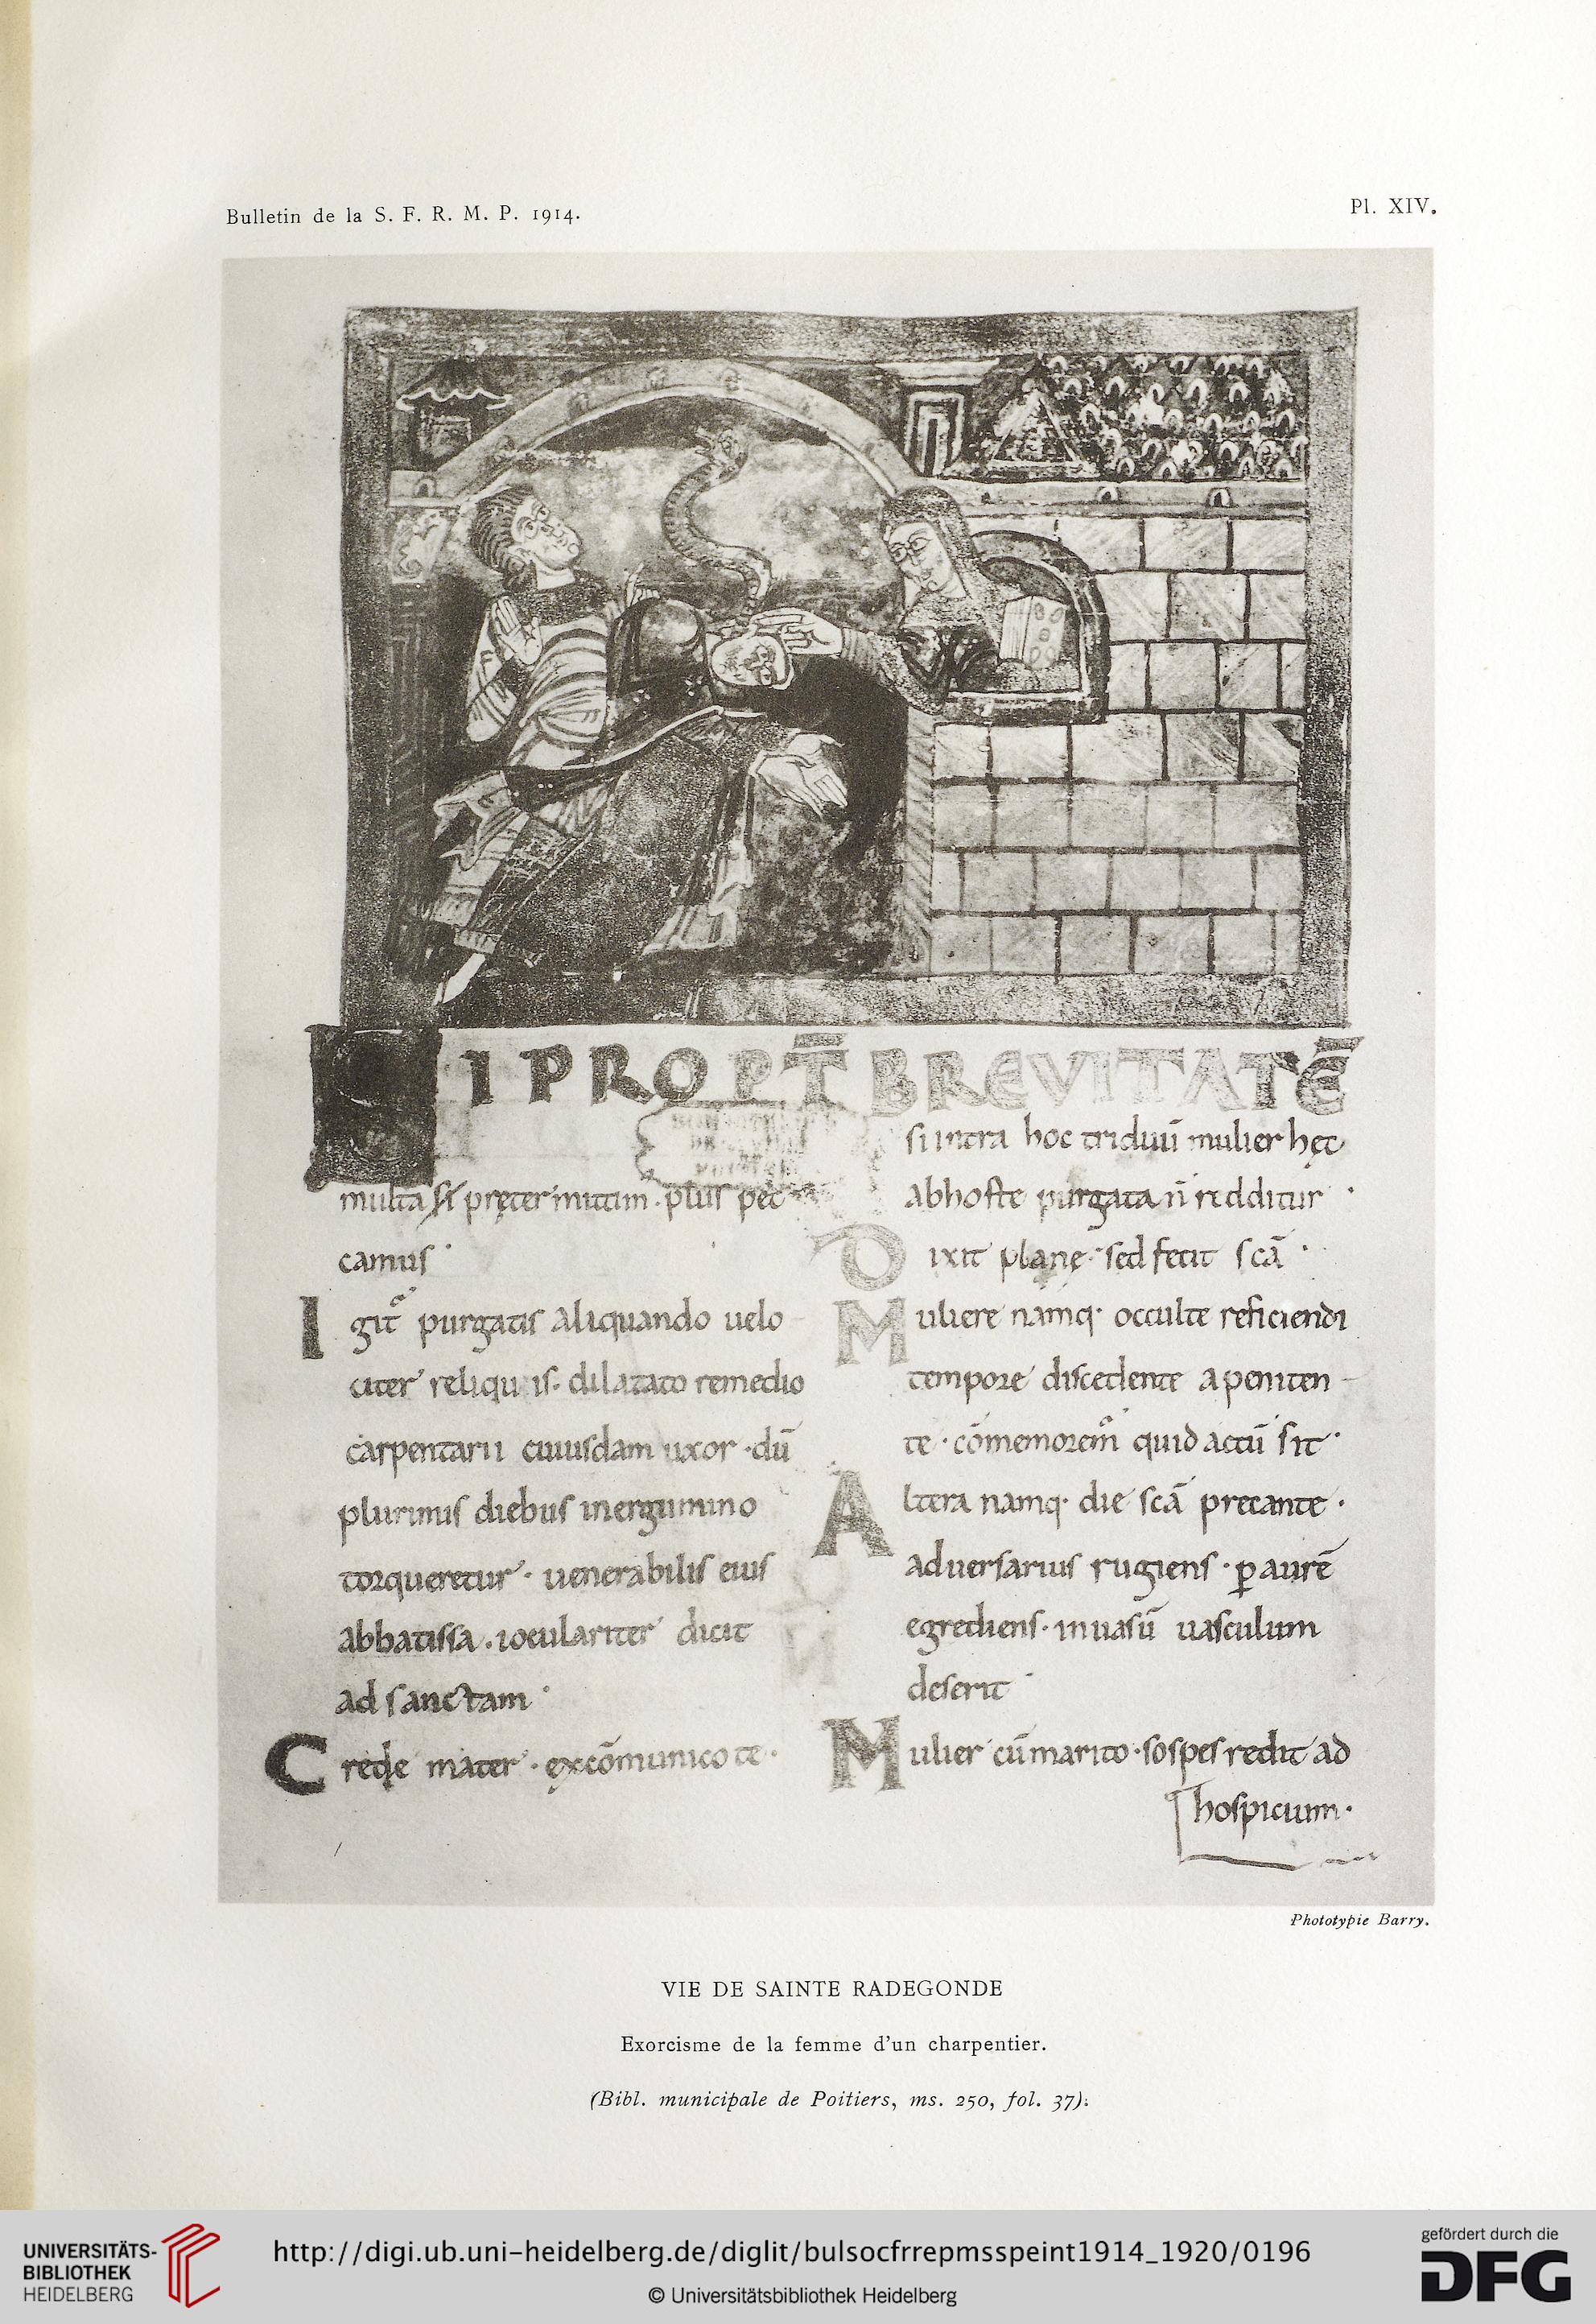 Bulletin de la S. F. R. M. P. 1914.
Pl. XIV.
SI PROPT̄ BREVITATĒ
multa si pręter mittim plus pec
camus ·
Igit᷑ purgatis aliquando uelo
citer reliquis · dilatato remedio
carpentarii cuiusdam uxor · dū
plurimis diebus inergumino
torqueretur · uenerabilis eius
abbatissa · ioculariter dicit
ad sanctam ·
Crede mater · excōmunico te ·
si intra hoc triduū mulier hęc
ab hoste purgata ñ redditur ·
Dixit planę · sed fecit scā ·
Muliere namq· occulte reficiendi
tempore discedente a peniten
te · cōmemorem̄ quid actū sit ·
Altera namq· die scā precante ·
aduersarius rugiens · ꝑ aurē
egrediens · inuasū uasculum
deserit ·
Mulier cū marito · sospes redit ad
hospicium ·
Phototypie Barry.
VIE DE SAINTE RADEGONDE
Exorcisme de la femme d'un charpentier.
(Bibl. municipale de Poitiers, ms. 250, fol. 37).
UNIVERSITÄTS-
BIBLIOTHEK
HEIDELBERG
http://digi.ub.uni-heidelberg.de/diglit/bulsocfrrepmsspeint1914_1920/0196
© Universitätsbibliothek Heidelberg
gefördert durch die
DFG